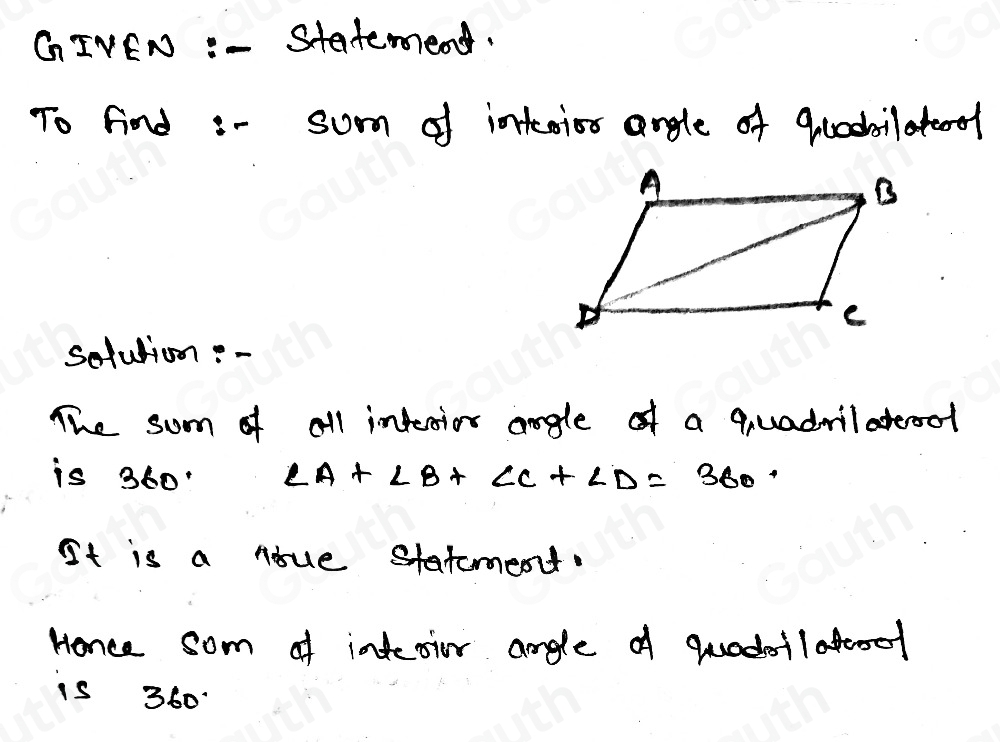 GIVEN :- Statement.
To find :- sum of interior angle of quadrilateral
A
B
D
C
Solution :-
The sum of all interior angle of a quadrilateral
is 360° ∠A + ∠B + ∠C + ∠D = 360°
It is a true statement.
Hence sum of interior angle of quadrilateral
is 360°
Gauth